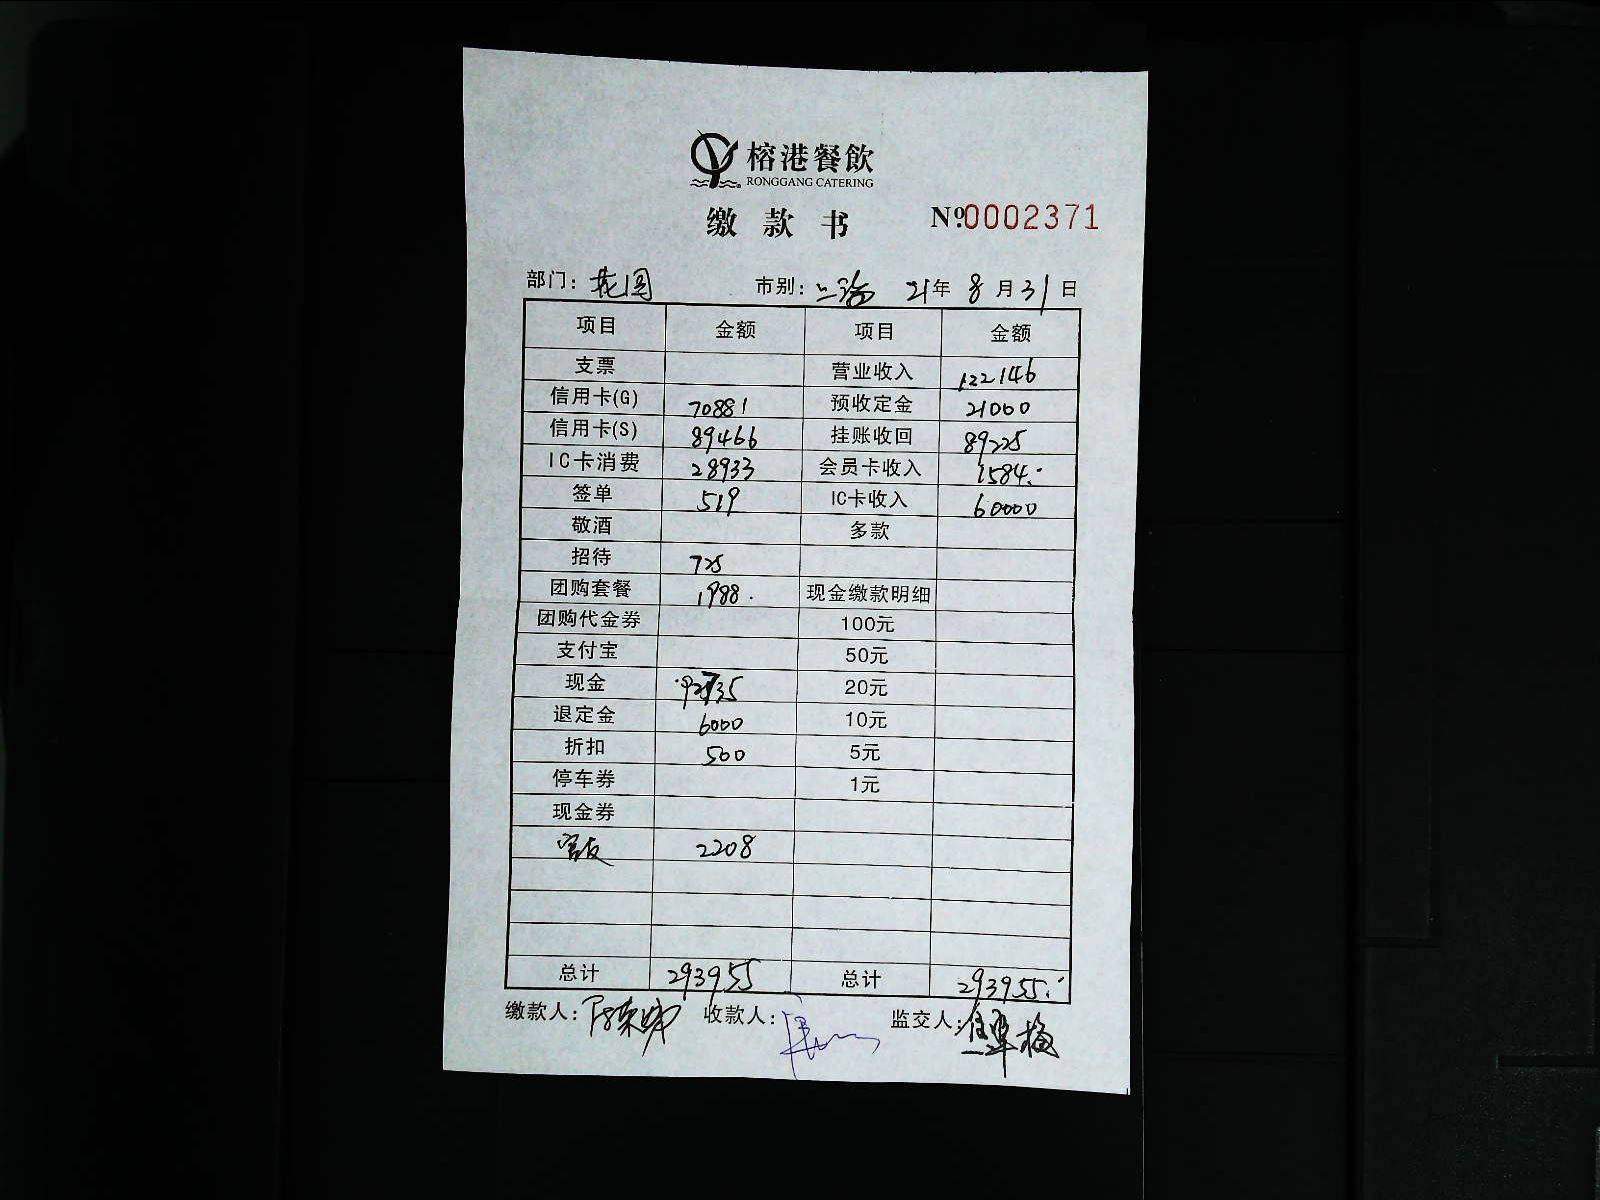 榕港餐飲
RONGGANG CATERING
缴款书 №0002371
部门: 花园 市别: 21年 8月 31日
项目 金额 项目 金额
支票 营业收入 122146
信用卡(G) 70881 预收定金 21000
信用卡(S) 89466 挂账收回 89225
IC卡消费 28933 会员卡收入 1584.
签单 519 IC卡收入 60000
敬酒 多款
招待 725
团购套餐 1988. 现金缴款明细
团购代金券 100元
支付宝 50元
现金 92735 20元
退定金 6000 10元
折扣 500 5元
停车券 1元
现金券
2208
总计 293955 总计 293955.
缴款人: 收款人: 监交人: